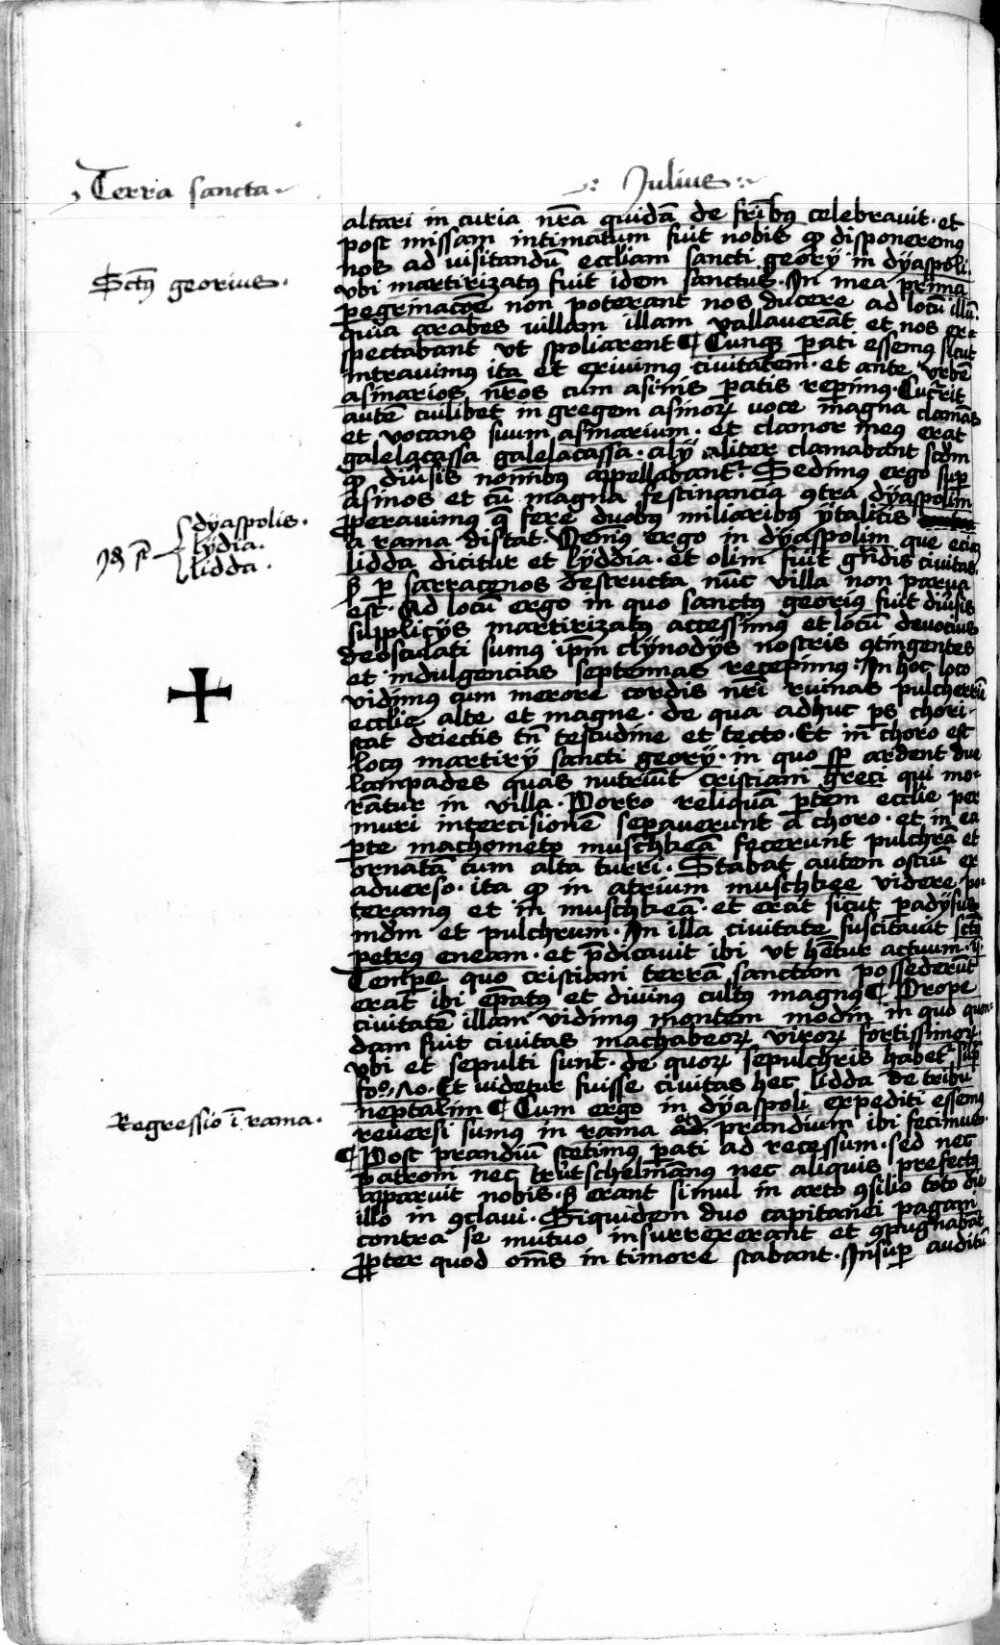 Terra sancta
Julius
altari in curia nr̄a quidā de frībꝰ celebravit · et
post missam intimatum fuit nobis ꝙ disponeremꝰ
nos ad visitandū eccl̄iam sancti georÿ in dÿaspoli ·
Sctꝰ georius ·
vbi martirizatꝰ fuit idem sanctus · In mea prima
ꝑegrinacōe non poterant nos ducere ad locū illū ·
quia arabes villam illam vallaverāt et nos ex
spectabant vt spoliarent ¶ Cunqꝫ ꝑati essemꝰ sicut
intravimꝰ ita et exivimꝰ civitatem · et ante vrbē
asinarios nr̄os cum asinis ꝑatis reꝑimꝰ · Cuc̄rit
autē cuilibet in gregem asinoꝝ voce magna clamās
et vocans suum asinarium · et clamor meꝰ erat
galelacassa galelacassa · alÿ aliter clamabant scdm
ꝙ diūsis nominibꝰ appellabantr · Sedimꝰ ergo suꝑ
asinos et cū magna festinancia ꝯtra dÿaspolim
ꝓperavimꝰ q̄ fere duobꝰ miliaribꝰ ÿtalicis
dÿaspolis ·
Id ē lÿdia ·
lidda ·
a rama distat · Venimꝰ ergo in dÿaspolim que eciā
lidda dicitur et lÿddia · et olim fuit grādis civitas
sꝫ ꝑ sarracenos destructa nūc villa non parva
est · Ad locū ergo in quo sanctꝰ georiꝰ fuit diūsis
supplicÿs martirizatꝰ accessimꝰ et locū devocius
deosculati sumꝰ ip̄m clÿnodÿs nostris ꝯtingentes
et indulgencias septennas recepimꝰ · In hoc loco
vidimꝰ cum merore cordis nr̄i ruinas pulcherrīe
eccl̄ie alte et magne · de qua adhuc ꝑs chori
stat deiectis tn̄ testudine et tecto · Et in choro est
locꝰ martirÿ sancti georÿ · in quo sꝑ ardent due
lampades quas nutriūt cristiani greci qui mo
rātur in villa · Porro reliquā ꝑtem eccl̄ie per
muri intercisionē seꝑaverunt a choro · et in ea
ꝑte machometo muschkeā fecerunt pulchrā et
ornatā cum alta turri · Stabat autem ostiū ex
adverso · ita ꝙ in atrium muschkee videre po
teramus et in muschkeā · et erat sicut ꝑadÿsus
mūdm et pulchrum · In illa civitate suscitavit sctꝰ
petrꝰ eneam · et p̄dicavit ibi vt hētur actuum · 9 ·
Tempe quo cristiani terrā sanctam possederūt
erat ibi ep̄atꝰ et divinꝰ cultꝰ magnꝰ ¶ Prope
civitatē illam vidimꝰ montem modin in quo quon
dam fuit civitas machabeoꝝ viroꝝ fortissimoꝝ
vbi et sepulti sunt · de quoꝝ sepulchris habetr suꝑ
fo · Et videtur fuisse civitas hec lidda de tribu
neptalim ¶ Cum ergo in dÿaspoli expediti essemꝰ
Regressio ī rama ·
reversi sumꝰ in rama et prandium ibi fecimus
¶ Post prandiū stetimꝰ ꝑati ad recessum · sed nec
patroni nec trutschelmānꝰ nec aliquis prefectꝰ
apparuit nobis · sꝫ erant simul in arto ꝯsilio toto die
illo in ꝯclavi · Siquidem duo capitanei pagani
contra se mutuo insurrexerant et ꝯpugnabāt
ꝓpter quod om̄s in timore stabant · Insuꝑ auditū